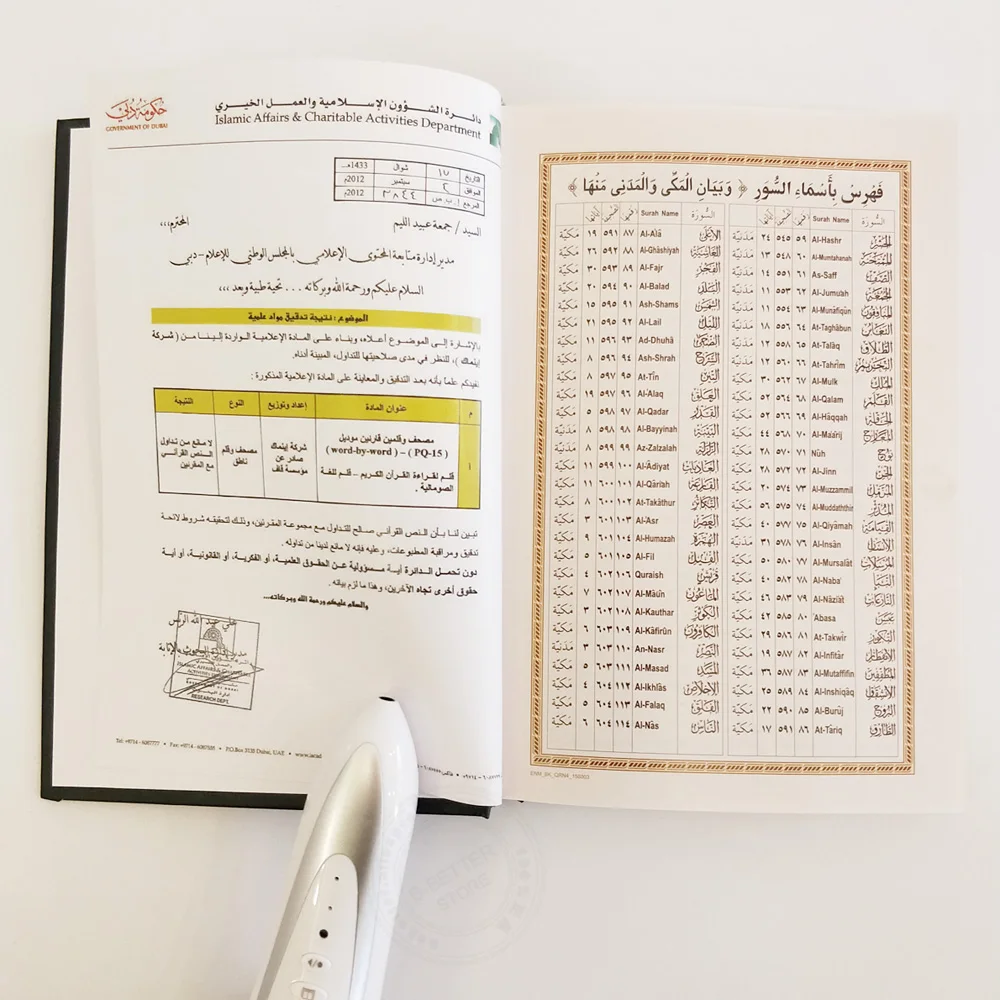 حكومة دبي
GOVERNMENT OF DUBAI
دائرة الشؤون الإسلامية والعمل الخيري
Islamic Affairs & Charitable Activities Department
التاريخ ١٧ شوال 1433هـ
الموافق ٤ سبتمبر 2012م
المرجع 2012م
السيد / جمعة عبيد الليم المحترم،،،
مدير إدارة متابعة المحتوى الإعلامي بالمجلس الوطني للإعلام - دبي
السلام عليكم ورحمة الله وبركاته ... تحية طيبة وبعد ،،،
الموضوع : نتيجة تدقيق مواد علمية
بالإشارة إلى الموضوع أعلاه، وبناء على المادة الإعلامية الواردة إلينا من ( شركة
إيتماك )، للنظر في مدى صلاحيتها للتداول، المبينة أدناه.
نفيدكم علما بأنه بعد التدقيق والمعاينة على المادة الإعلامية المذكورة :
م عنوان المادة إعداد وتوزيع النوع النتيجة
١ مصحف وقلمين قارئين موديل
( PQ-15 ) – (word-by-word)
قلم لقراءة القرآن الكريم – قلم للغة
الصومالية .
شركة إيتماك
صادر عن
مؤسسة قاف
مصحف وقلم
ناطق
لا مانع من تداول
النص القرآني
مع المقرئين
تبين لنا بأن النص القرآني صالح للتداول مع مجموعة المقرئين، وذلك لتحقيقه شروط لائحة
تدقيق ومراقبة المطبوعات، وعليه فإنه لا مانع لدينا من تداوله .
دون تحمل الدائرة أية مسؤولية عن الحقوق العلمية، أو الفكرية، أو القانونية، أو أية
حقوق أخرى تجاه الآخرين، وهذا ما لزم بيانه .
والسلام عليكم ورحمة الله وبركاته...
RESEARCH DEPT.
P.O.Box 3135 Dubai, UAE
فهرس بأسماء السور ﴿ وبيان المكي والمدني منها ﴾
السورة Surah Name
الحشر Al-Hashr ٥٩ ٥٤٥ ٢٤ مدنية
الممتحنة Al-Mumtahanah ٦٠ ٥٤٨ ١٣ مدنية
الصف As-Saff ٦١ ٥٥١ ١٤ مدنية
الجمعة Al-Jumu'ah ٦٢ ٥٥٣ ١١ مدنية
المنافقون Al-Munāfiqūn ٦٣ ٥٥٤ ١١ مدنية
التغابن At-Taghābun ٦٤ ٥٥٦ ١٨ مدنية
الطلاق At-Talāq ٦٥ ٥٥٨ ١٢ مدنية
التحريم At-Tahrīm ٦٦ ٥٦٠ ١٢ مدنية
الملك Al-Mulk ٦٧ ٥٦٢ ٣٠ مكية
القلم Al-Qalam ٦٨ ٥٦٤ ٥٢ مكية
الحاقة Al-Hāqqah ٦٩ ٥٦٦ ٥٢ مكية
المعارج Al-Maārij ٧٠ ٥٦٨ ٤٤ مكية
نوح Nūh ٧١ ٥٧٠ ٢٨ مكية
الجن Al-Jinn ٧٢ ٥٧٢ ٢٨ مكية
المزمل Al-Muzzammil ٧٣ ٥٧٤ ٢٠ مكية
المدثر Al-Muddaththir ٧٤ ٥٧٥ ٥٦ مكية
القيامة Al-Qiyāmah ٧٥ ٥٧٧ ٤٠ مكية
الإنسان Al-Insān ٧٦ ٥٧٨ ٣١ مدنية
المرسلات Al-Mursalāt ٧٧ ٥٨٠ ٥٠ مكية
النبأ An-Naba' ٧٨ ٥٨٢ ٤٠ مكية
النازعات An-Nāziāt ٧٩ ٥٨٣ ٤٦ مكية
عبس Abasa ٨٠ ٥٨٥ ٤٢ مكية
التكوير At-Takwīr ٨١ ٥٨٦ ٢٩ مكية
الانفطار Al-Infitār ٨٢ ٥٨٧ ١٩ مكية
المطففين Al-Mutaffifīn ٨٣ ٥٨٧ ٣٦ مكية
الانشقاق Al-Inshiqāq ٨٤ ٥٨٩ ٢٥ مكية
البروج Al-Burūj ٨٥ ٥٩٠ ٢٢ مكية
الطارق At-Tariq ٨٦ ٥٩١ ١٧ مكية
السورة Surah Name
الأعلى Al-Alā ٨٧ ٥٩١ ١٩ مكية
الغاشية Al-Ghāshiyah ٨٨ ٥٩٢ ٢٦ مكية
الفجر Al-Fajr ٨٩ ٥٩٣ ٣٠ مكية
البلد Al-Balad ٩٠ ٥٩٤ ٢٠ مكية
الشمس Ash-Shams ٩١ ٥٩٥ ١٥ مكية
الليل Al-Lail ٩٢ ٥٩٥ ٢١ مكية
الضحى Ad-Dhuhā ٩٣ ٥٩٦ ١١ مكية
الشرح Ash-Shrah ٩٤ ٥٩٦ ٨ مكية
التين At-Tīn ٩٥ ٥٩٧ ٨ مكية
العلق Al-Alaq ٩٦ ٥٩٧ ١٩ مكية
القدر Al-Qadar ٩٧ ٥٩٨ ٥ مكية
البينة Al-Bayyinah ٩٨ ٥٩٨ ٨ مدنية
الزلزلة Az-Zalzalah ٩٩ ٥٩٩ ٨ مدنية
العاديات Al-Ādiyat ١٠٠ ٥٩٩ ١١ مكية
القارعة Al-Qāriah ١٠١ ٦٠٠ ١١ مكية
التكاثر At-Takāthur ١٠٢ ٦٠٠ ٨ مكية
العصر Al-Āsr ١٠٣ ٦٠١ ٣ مكية
الهمزة Al-Humazah ١٠٤ ٦٠١ ٩ مكية
الفيل Al-Fil ١٠٥ ٦٠١ ٥ مكية
قريش Quraish ١٠٦ ٦٠٢ ٤ مكية
الماعون Al-Māūn ١٠٧ ٦٠٢ ٧ مكية
الكوثر Al-Kauthar ١٠٨ ٦٠٢ ٣ مكية
الكافرون Al-Kāfirūn ١٠٩ ٦٠٣ ٦ مكية
النصر An-Nasr ١١٠ ٦٠٣ ٣ مدنية
المسد Al-Masad ١١١ ٦٠٣ ٥ مكية
الإخلاص Al-Ikhlās ١١٢ ٦٠٤ ٤ مكية
الفلق Al-Falaq ١١٣ ٦٠٤ ٥ مكية
الناس An-Nās ١١٤ ٦٠٤ ٦ مكية